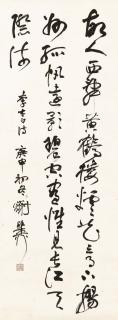 故人西辭黃鶴樓煙花三月下揚
州孤帆遠影碧空盡惟見長江天
際流
詩 庚申初冬